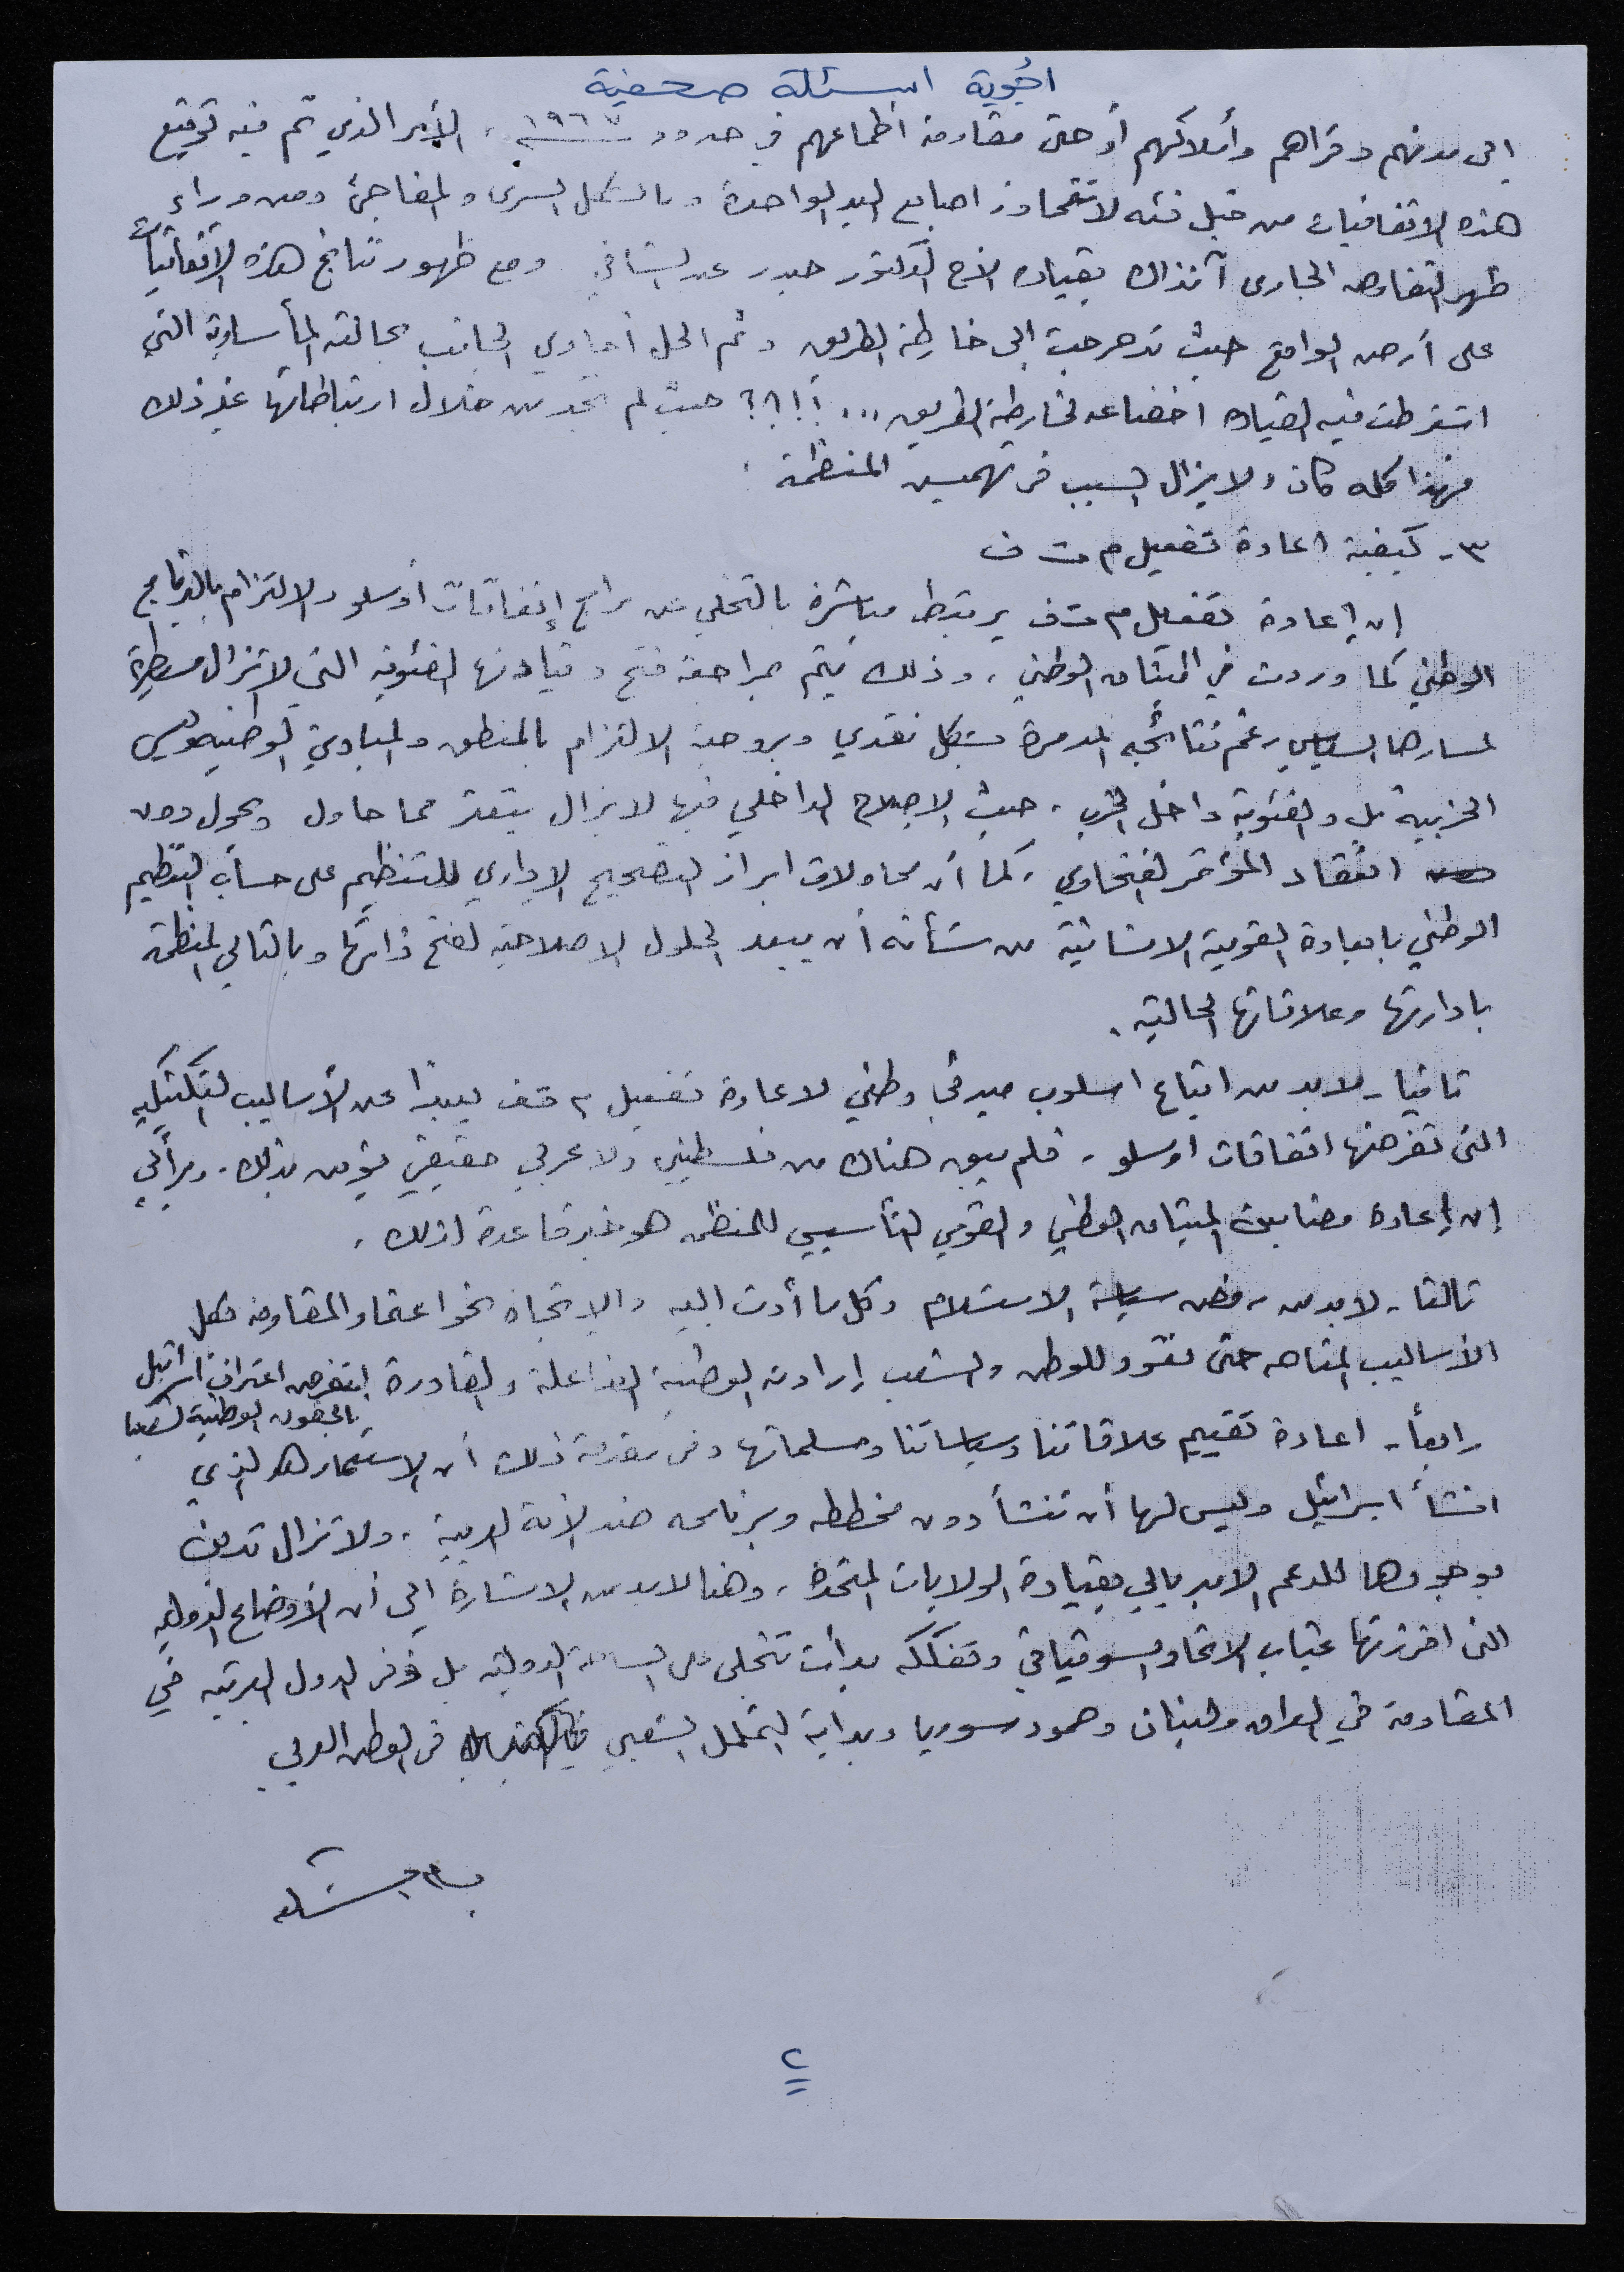 اجوبة اسئلة صحفية
إلى مدنهم وقراهم وأملاكهم أو حتى مقاومة اطماعهم في حدود ١٩٦٧، الأمر الذي تم فيه توقيع
هذه الاتفاقيات من قبل فئة لا تتجاوز اصابع اليد الواحدة وبالشكل السري والمفاجئ ومن وراء
ظهر التفاوض الجاري آنذاك بقيادة الأخ الدكتور حيدر عبد الشافي ومع ظهور نتائج هذه الاتفاقيات
على أرض الواقع حيث تدحرجت إلى خارطة الطريق وثم الحل أحادي الجانب بحالته المأساوية التي
اشترطت فيه القيادة اخضاعه لخارطة الطريق ...؟!!؟ حيث لم تجد من خلال ارتباطاتها غير ذلك
فهذا كله كان ولا يزال السبب في تهميش المنظمة.
٣- كيفية اعادة تفعيل م ت ف
إن إعادة تفعيل م ت ف يرتبط مباشرة بالتخلي عن برامج إتفاقات أوسلو والالتزام بالبرنامج
الوطني كما وردت في الميثاق الوطني، وذلك يتم بمراجعة فتح وقيادتها الفئوية التي لا تزال مسيطرة
لمسارها السياسي رغم نتائجه المدمرة بشكل نقدي وبروحية الالتزام بالمنطق والمبادئ الوطنية وليس
الحزبية بل والفئوية داخل الحزب. حيث الإصلاح الداخلي فيها لا يزال يتعثر مما حاول ويحول دون
انعقاد المؤتمر الفتحاوي، كما أن محاولات ابراز التصحيح الإداري للتنظيم على حساب التنظيم
الوطني بابعاده القومية الانسانية من شأنه أن يبعد الحلول الاصلاحية لفتح ذاتها وبالتالي المنظمة
بادارتها وعلاقاتها الحالية.
ثانيا- لابد من اتباع اسلوب مبدئي وطني لاعادة تفعيل م ت ف بعيدا عن الأساليب التكتيكية
التي تفرضها اتفاقات اوسلو. فلم يبق هناك من فلسطيني ولا عربي حقيقي يؤمن بذلك. وبرأي
إن إعادة مضامين الميثاق الوطني والقومي التأسيسي للمنظمة هو خير قاعدة لذلك.
ثالثا- لابد من رفض سياسة الاستسلام وكل ما أدت اليه والاتجاه نحو اعتماد المقاومة بكل
الأساليب المتاحه حتى تعود للوطن والشعب إرادته الوطنية الفاعلة والقادرة لتفرض اعتراف اسرائيل
بالحقوق الوطنية لشعبنا
رابعاً- اعادة تقييم علاقاتنا وسياساتنا ومسلماتها وفي مقدمة ذلك أن الاستعمار هو الذي
انشأ اسرائيل وليس لها أن تنشأ دون مخططه وبرنامجه ضد الأمة العربية. ولا تزال تدين
بوجودها للدعم الامبريالي بقيادة الولايات المتحدة، وهنا لابد من الاشارة إلى أن الأوضاع الدولية
التي افرزتها غياب الاتحاد السوفياتي وتفككه بدأت تتجلى على الساحة الدولية بل وفي الدول العربية في
المقاومة في العراق ولبنان وصمود سوريا وبداية التململ الشعبي في الوطن العربي
٢